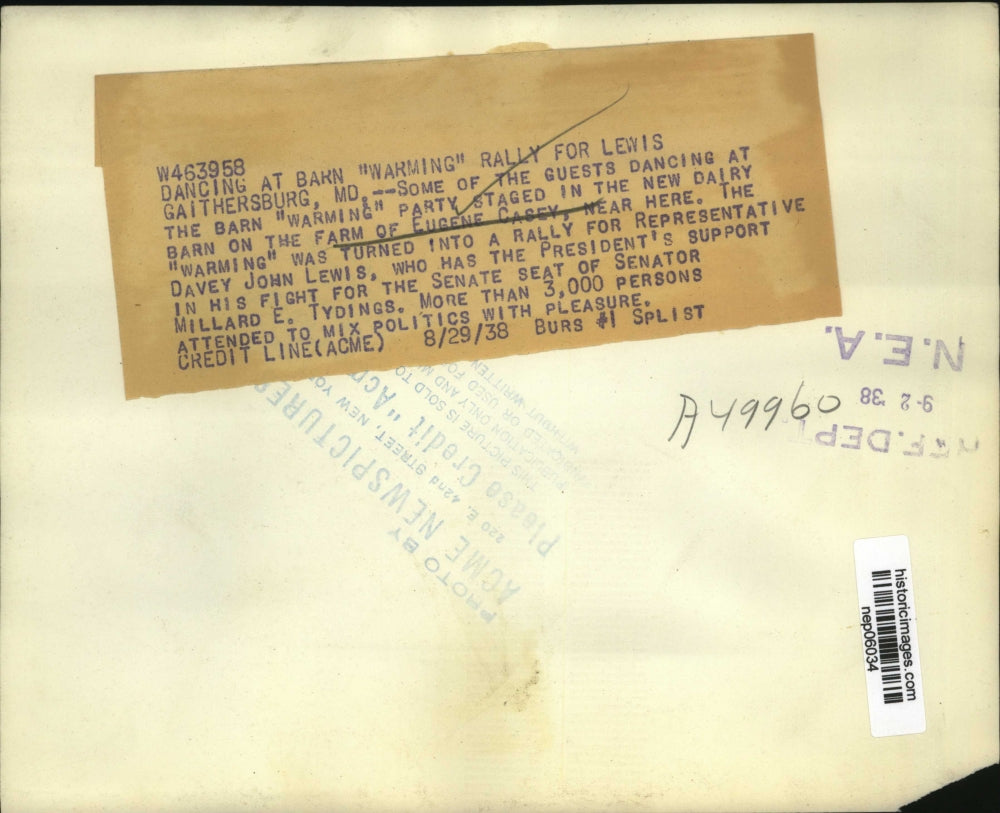 W463958
DANCING AT BARN "WARMING" RALLY FOR LEWIS
GAITHERSBURG, MD.--SOME OF THE GUESTS DANCING AT
THE BARN "WARMING" PARTY STAGED IN THE NEW DAIRY
BARN ON THE FARM OF EUGENE CASEY, NEAR HERE. THE
"WARMING" WAS TURNED INTO A RALLY FOR REPRESENTATIVE
DAVEY JOHN LEWIS, WHO HAS THE PRESIDENT'S SUPPORT
IN HIS FIGHT FOR THE SENATE SEAT OF SENATOR
MILLARD E. TYDINGS. MORE THAN 3,000 PERSONS
ATTENDED TO MIX POLITICS WITH PLEASURE.
CREDIT LINE(ACME) 8/29/38 BURS #1 SPLIST
N.E.A.
9-2 '38
REF. DEPT.
A49960
PHOTO BY
ACME NEWSPICTURES
220 E. 42nd STREET, NEW YO
Please Credit "Acm
THIS PICTURE IS SOLD TO
PUBLICATION ONLY AND M
OR USED FO
WITHOUT WRITTEN
historicimages.com
nep06034